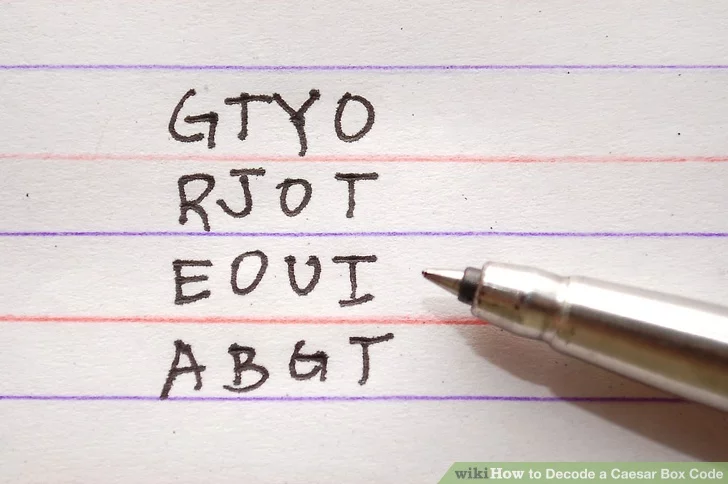 GTYO
RJOT
EOUI
ABGT
wikiHow to Decode a Caesar Box Code